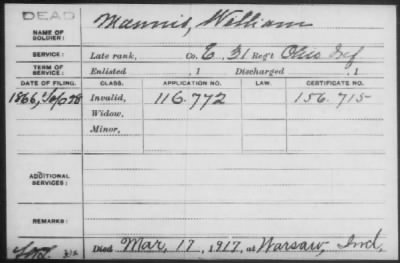 DEAD
NAME OF SOLDIER: Mannis, William
SERVICE: Late rank, Co. E, 31 Reg't Ohio Inf
TERM OF SERVICE: Enlisted , 1 Discharged , 1
DATE OF FILING. CLASS. APPLICATION NO. LAW. CERTIFICATE NO.
1866, Sep 28 Invalid, 116.772 156.715
Widow,
Minor,
ADDITIONAL SERVICES:
REMARKS:
Died Mar, 17, 1917, at Warsaw, Ind.